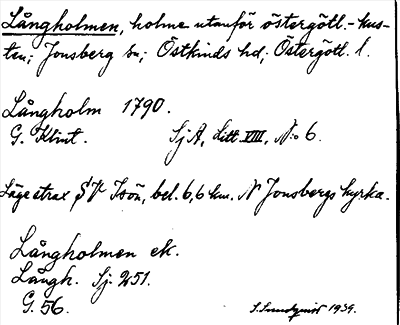 Långholmen, holme utanför östergötl.-kus-
ten; Jonsberg sn; Östkinds hd; Östergötl. l.
Långholm 1790.
G. Klint. SjA, Litt VIII, N:o 6.
Läge strax SV Isön, bel. 6,6 km. N Jonsbergs kyrka.
Långholmen ek.
Långh. Sj. 251.
G. 56. S. Sundqvist 1934.